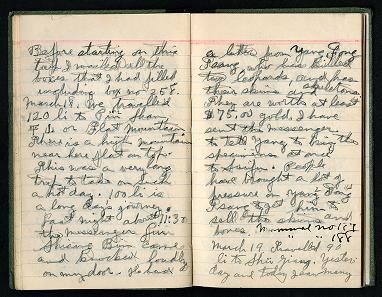 Before starting on this
trip I marked all the
boxes that I had filled
including box no 258.
March 18. We travelled
120 li to Pin Shan
or Flat Mountain.
There is a high mountain
near here flat on top.
This was a very long
trip to take on such
a hot day. 100 li is
a long day's journey.
Last night about 11:30
the messenger
Shuang Bin came
and knocked loudly
on my door. He had
a letter from Yang Fong
Tsang, who has killed
two leopards, and has
their skins and skeletons.
They are worth at least
$75.00 gold. I have
sent the messenger
to tell Yang to bring the
specimens at once
to Suifu. People
have brought a lot of
pressure on Yang Fong
Tsang to get him to
sell the skins and
bones. Mammal no 187
" " 188
March 19. Travelled 90
li to Shin. Yester
day and today I saw many